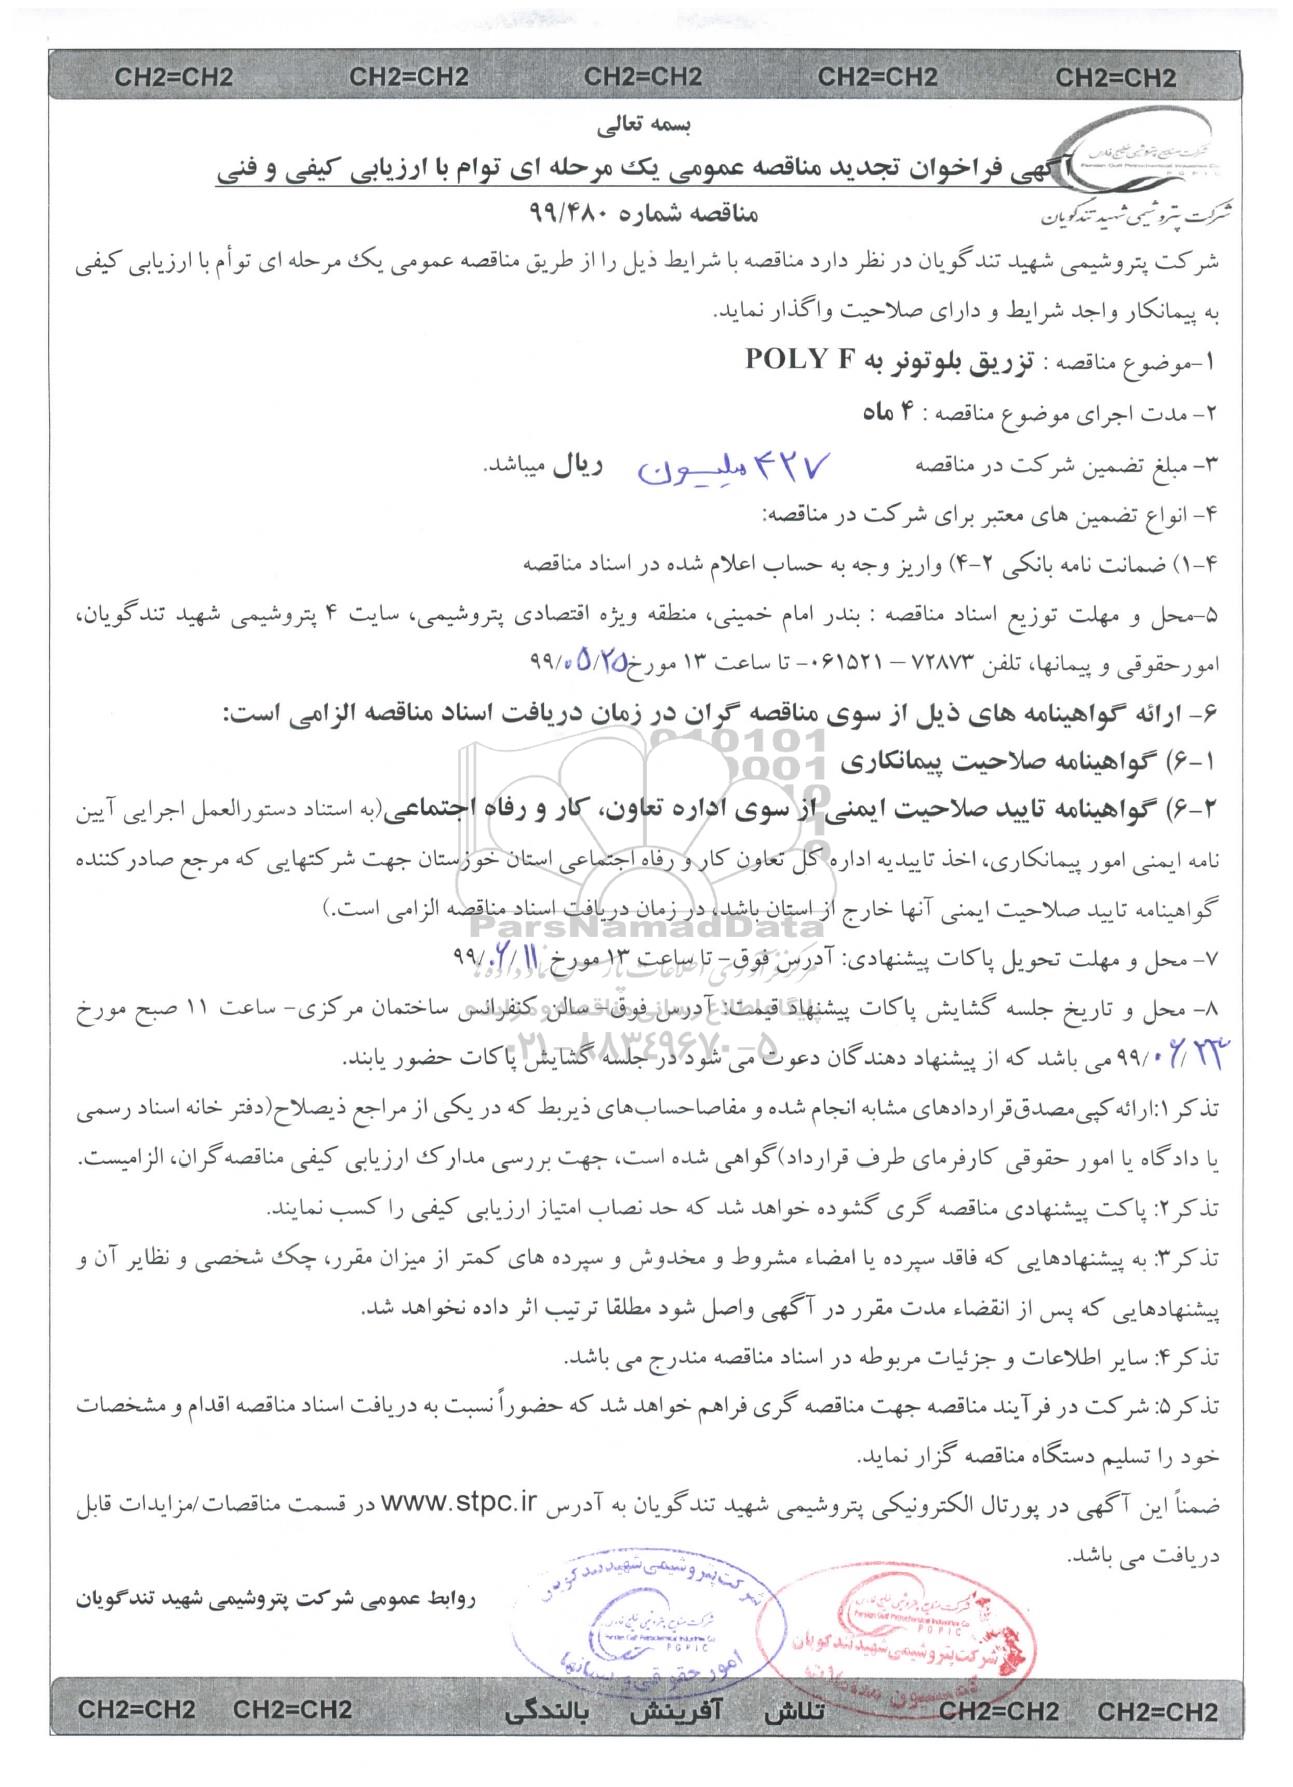 CH2=CH2 CH2=CH2 CH2=CH2 CH2=CH2 CH2=CH2
بسمه تعالی
شرکت صنایع پتروشیمی خلیج فارس
Persian Gulf Petrochemical Industries Co.
P G P I C
شرکت پتروشیمی شهید تندگویان
آگهی فراخوان تجدید مناقصه عمومی یک مرحله ای توام با ارزیابی کیفی و فنی
مناقصه شماره ۹۹/۴۸۰
شرکت پتروشیمی شهید تندگویان در نظر دارد مناقصه با شرایط ذیل را از طریق مناقصه عمومی یک مرحله ای توأم با ارزیابی کیفی
به پیمانکار واجد شرایط و دارای صلاحیت واگذار نماید.
۱-موضوع مناقصه : تزریق بلوتونر به POLY F
۲- مدت اجرای موضوع مناقصه : ۴ ماه
۳- مبلغ تضمین شرکت در مناقصه ۴۲۷ میلیون ریال میباشد.
۴- انواع تضمین های معتبر برای شرکت در مناقصه:
۴-۱) ضمانت نامه بانکی ۴-۲) واریز وجه به حساب اعلام شده در اسناد مناقصه
۵-محل و مهلت توزیع اسناد مناقصه : بندر امام خمینی، منطقه ویژه اقتصادی پتروشیمی، سایت ۴ پتروشیمی شهید تندگویان،
امورحقوقی و پیمانها، تلفن ۷۲۸۷۳ – ۰۶۱۵۲۱- تا ساعت ۱۳ مورخ ۹۹/۰۵/۲۵
۶- ارائه گواهینامه های ذیل از سوی مناقصه گران در زمان دریافت اسناد مناقصه الزامی است:
۶-۱) گواهینامه صلاحیت پیمانکاری
۶-۲) گواهینامه تایید صلاحیت ایمنی از سوی اداره تعاون، کار و رفاه اجتماعی(به استناد دستورالعمل اجرایی آیین
نامه ایمنی امور پیمانکاری، اخذ تاییدیه اداره کل تعاون کار و رفاه اجتماعی استان خوزستان جهت شرکتهایی که مرجع صادرکننده
گواهینامه تایید صلاحیت ایمنی آنها خارج از استان باشد، در زمان دریافت اسناد مناقصه الزامی است.)
ParsNamadData
۷- محل و مهلت تحویل پاکات پیشنهادی: آدرس فوق- تا ساعت ۱۳ مورخ ۹۹/۰۶/۱۱
۸- محل و تاریخ جلسه گشایش پاکات پیشنهاد قیمت: آدرس فوق- سالن کنفرانس ساختمان مرکزی- ساعت ۱۱ صبح مورخ
۹۹/۰۶/۲۳ می باشد که از پیشنهاد دهندگان دعوت می شود در جلسه گشایش پاکات حضور یابند.
۰۲۱-۸۸۳۴۹۶۷۰-۵
تذکر۱:ارائه کپی مصدق قراردادهای مشابه انجام شده و مفاصاحساب‌های ذیربط که در یکی از مراجع ذیصلاح(دفتر خانه اسناد رسمی
یا دادگاه یا امور حقوقی کارفرمای طرف قرارداد)گواهی شده است، جهت بررسی مدارک ارزیابی کیفی مناقصه‌گران، الزامیست.
تذکر۲: پاکت پیشنهادی مناقصه گری گشوده خواهد شد که حد نصاب امتیاز ارزیابی کیفی را کسب نمایند.
تذکر۳: به پیشنهادهایی که فاقد سپرده یا امضاء مشروط و مخدوش و سپرده های کمتر از میزان مقرر، چک شخصی و نظایر آن و
پیشنهادهایی که پس از انقضاء مدت مقرر در آگهی واصل شود مطلقا ترتیب اثر داده نخواهد شد.
تذکر۴: سایر اطلاعات و جزئیات مربوطه در اسناد مناقصه مندرج می باشد.
تذکر۵: شرکت در فرآیند مناقصه جهت مناقصه گری فراهم خواهد شد که حضوراً نسبت به دریافت اسناد مناقصه اقدام و مشخصات
خود را تسلیم دستگاه مناقصه گزار نماید.
ضمناً این آگهی در پورتال الکترونیکی پتروشیمی شهید تندگویان به آدرس www.stpc.ir در قسمت مناقصات/مزایدات قابل
دریافت می باشد.
روابط عمومی شرکت پتروشیمی شهید تندگویان
شرکت پتروشیمی شهید تندگویان
امور حقوقی و پیمانها
شرکت پتروشیمی شهید تندگویان
CH2=CH2 CH2=CH2 تلاش آفرینش بالندگی CH2=CH2 CH2=CH2